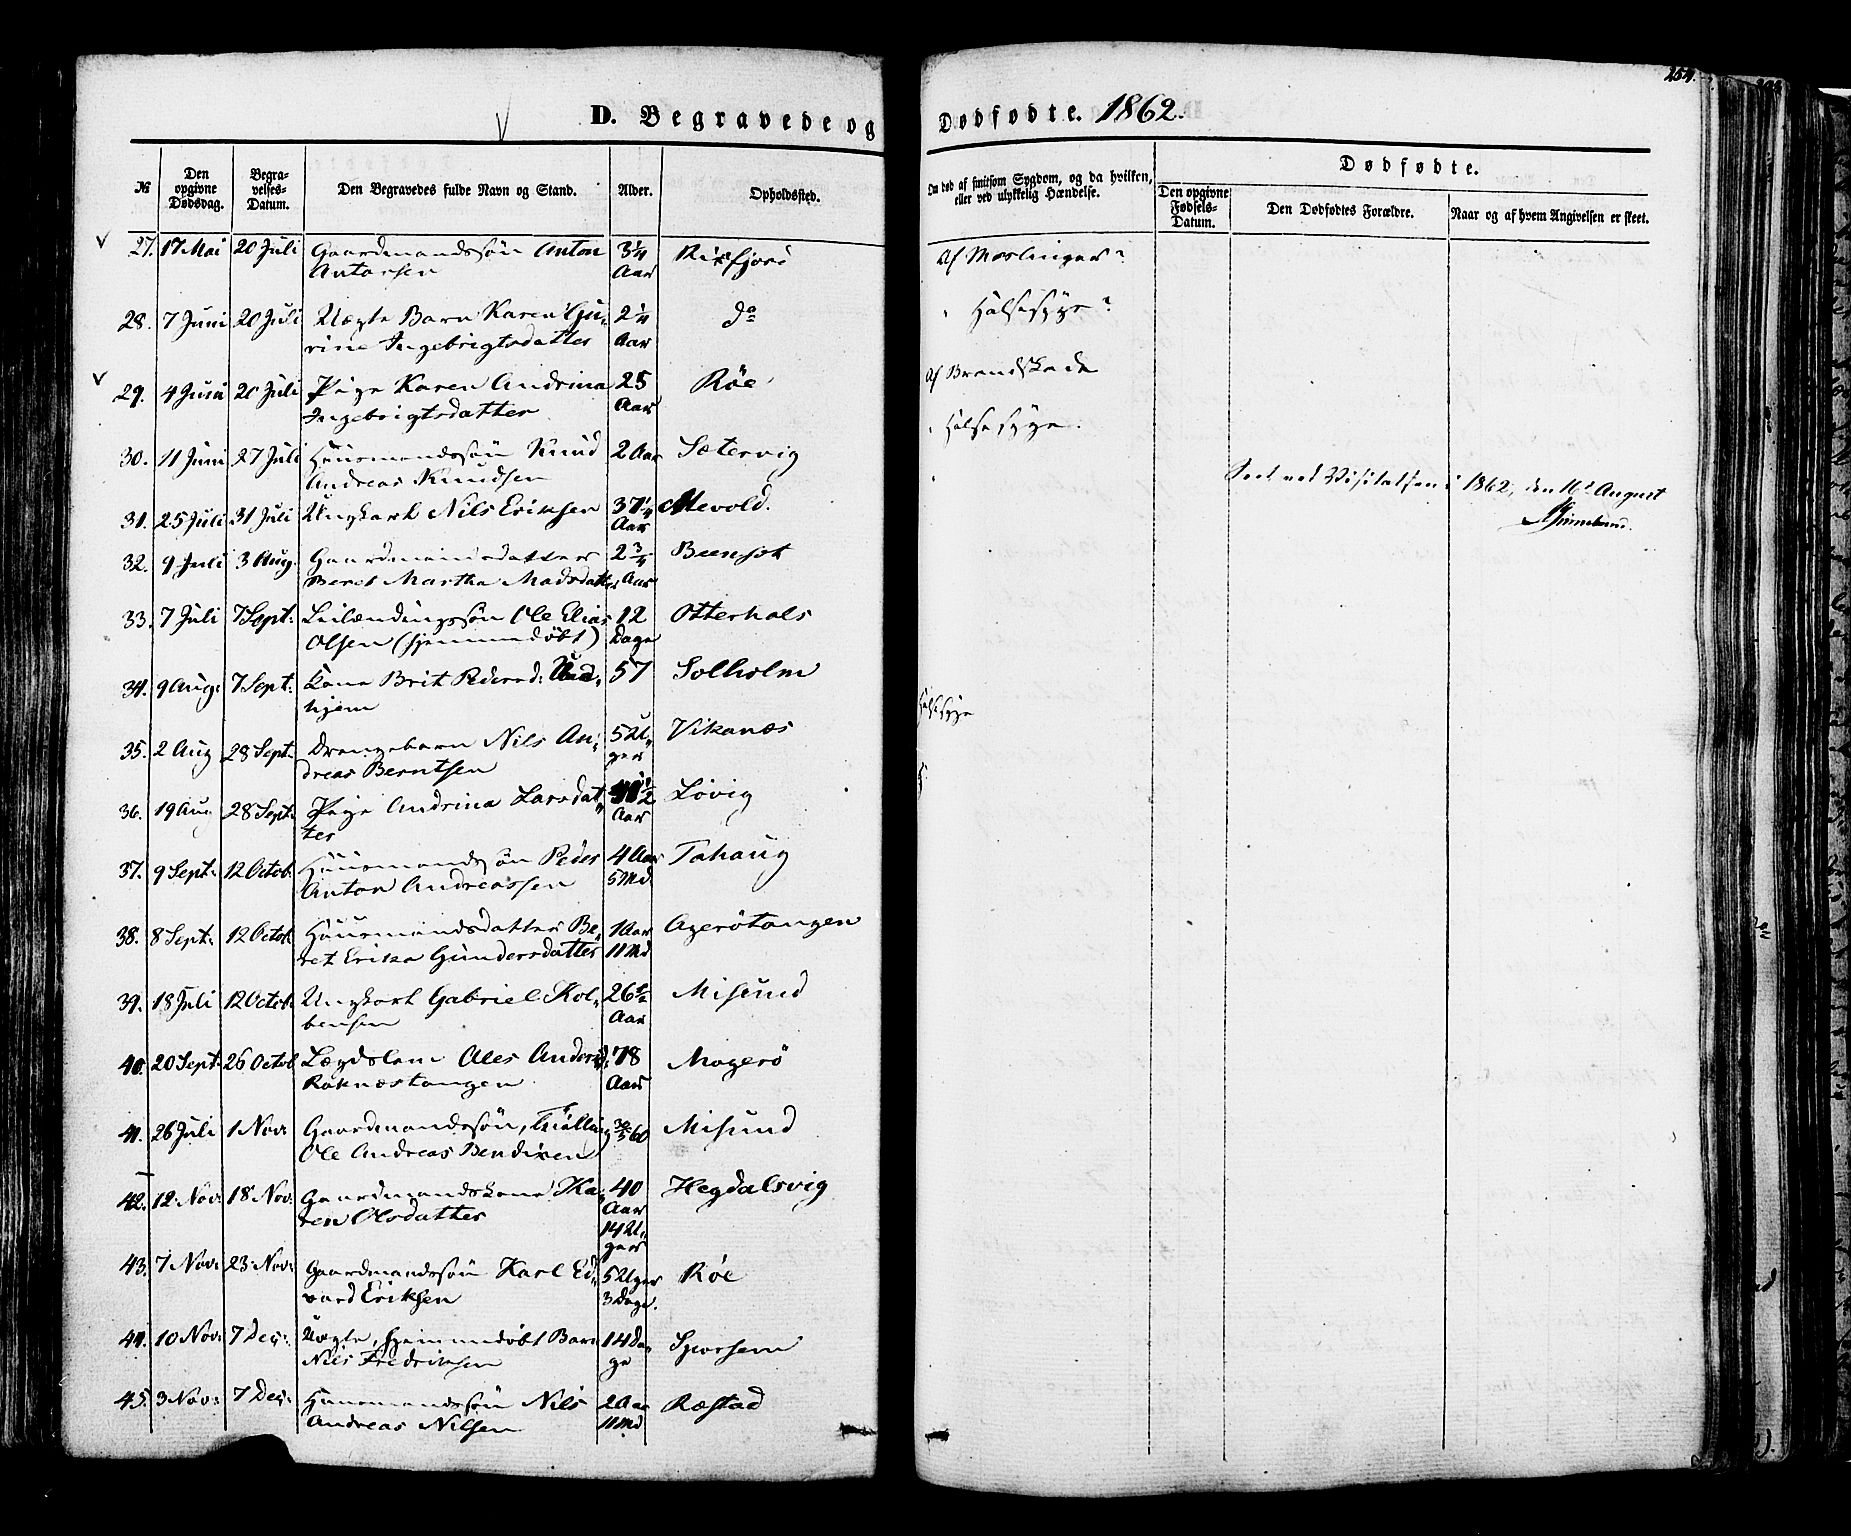 254.
D. Begravede og Dødfødte. 1862.
№
Den opgivne Dødsdag.
Begravelses-Datum.
Den Begravedes fulde Navn og Stand.
Alder.
Opholdssted.
Om død af smitsom Sygdom, og da hvilken, eller ved ulykkelig Hændelse.
Dødfødte.
Den opgivne Fødsels-Datum.
Den Dødfødtes Forældre.
Naar og af hvem Angivelsen er skeet.
27. 17 Mai 20 Juli Gaardmandssøn Anton 3¼
Antonsen Aar
Af Meslinger?
28. 7 Juni 20 Juli Uægte Barn Karen Gu- 2¼ do
rine Ingebrigtsdatter Aar
" Halssyge?
29. 4 Juni 20 Juli Pige Karen Andrina 25 Röe
Ingebrigtsdatter Aar
Af Brandskade
30. 11 Juni 27 Juli Huusmandssøn Knud 2 Aar Sætervig
Andreas Knudsen
" Halssyge.
31. 25 Juli 31 Juli Ungkarl Nils Eriksen 37¼ Mevold.
Aar
Seet ved Visitatsen i 1862, den 16de August
32. 9 Juli 3 Aug. Gaardmandsdatter 2¾
Beret Martha Madsdatter Aar
33. 7 Juli 7 Sept: Leilændingssøn Ole Elias 12 Otterhals
Olsen (hjemmedöbt) Dage
34. 9 Aug: 7 Sept: Kone Brit Pedersd: 57 Solholm
hjem
Halssyge
35. 2 Aug 28 Sept: Drengebarn Nils An- 5 U- Vikanæs
dreas Berntsen ger
36. 19 Aug 28 Sept: Pige Andrina Larsdat- Lövig
ter Aar
37. 9 Sept: 12 Octob. Huusmandssøn Peder 4 Aar Tahaug
Anton Andreassen 5 Md.
38. 8 Sept: 12 Octob. Huusmandsdatter Be- 1 Aar Agerötangen
ret Erika Gundersdatter 11 Md
39. 18 Juli 12 Octob. Ungkarl Gabriel Kol- 26½ Misund
bensen Aar
40. 20 Sept: 26 Octob Lægdslem Ales Andersd: 78 Magerö
Raknæstangen Aar
41. 26 Juli 1 Nov: Gaardmandssøn, Tvilling Misund
Ole Andreas Bendixen
42. 12 Nov: 18 Nov: Gaardmandskone Ka- 40 Hegdalsvig
ren Olsdatter Aar
14 U-
ger
43. 7 Nov: 23 Nov: Gaardmandssøn Karl Ed- 5 Uger Röe
vard Eriksen 3 Dage.
44. 10 Nov: 7 Dec: Uægte, hjemmedöbt Barn 14 Da-
Nils Fredriksen ge
45. 3 Nov: 7 Dec: Huusmandssøn Nils 2 Aar Ræstad
Andreas Nilsen 11 Md